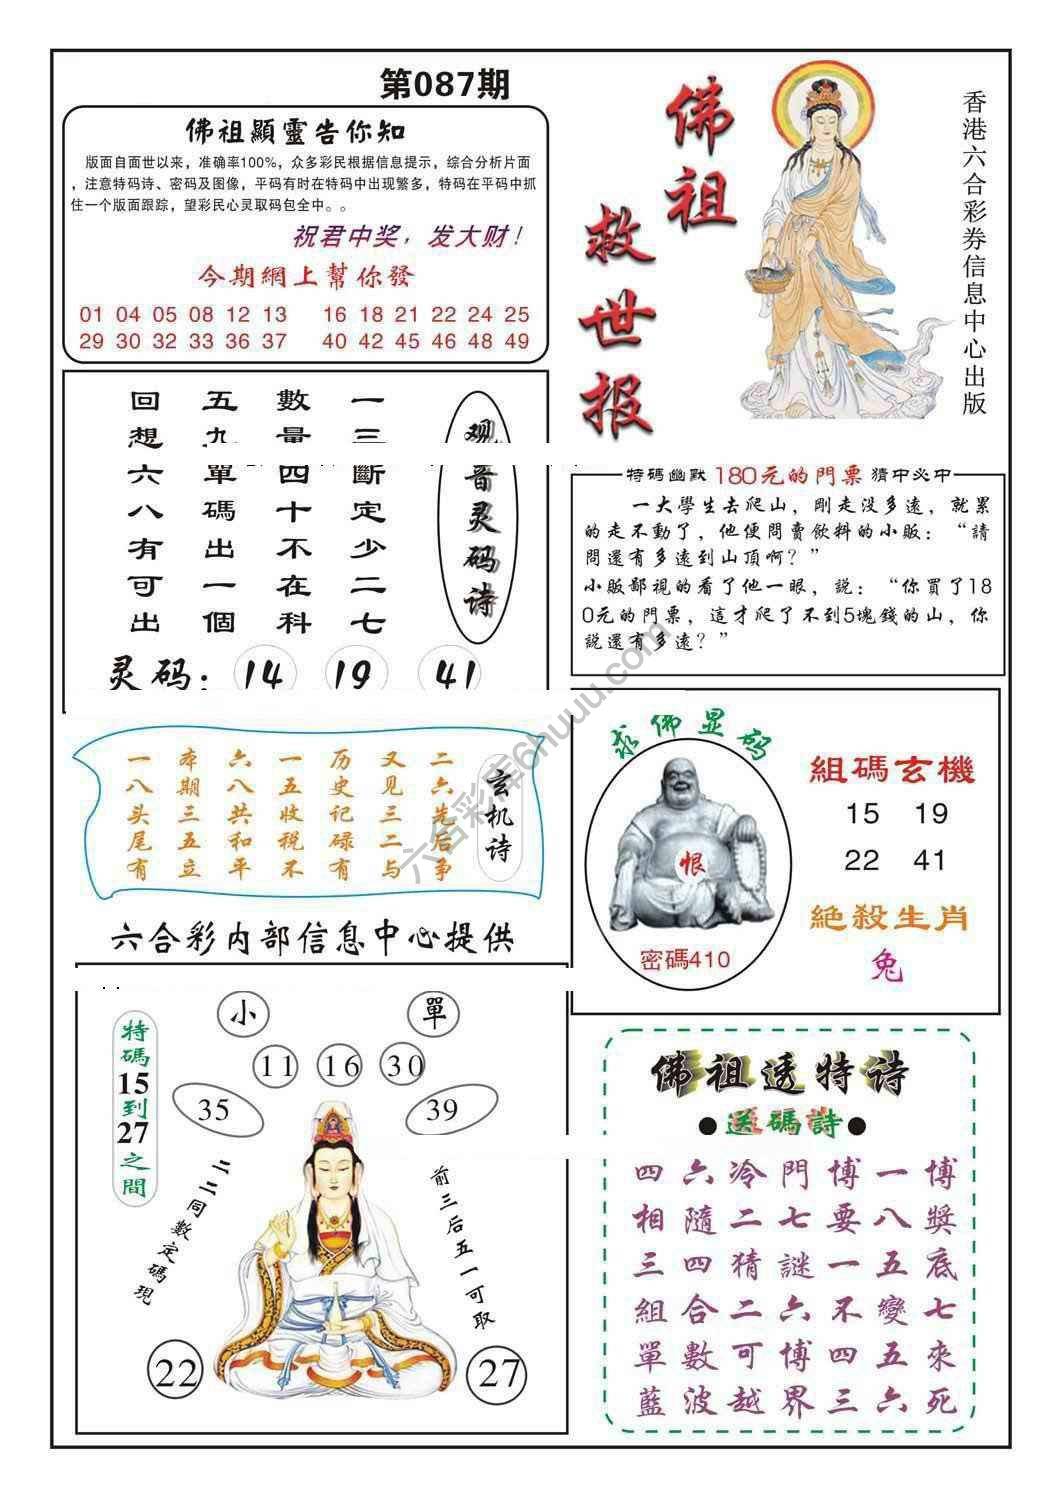 第087期
佛祖顯靈告你知
版面自面世以来，准确率100%，众多彩民根据信息提示，综合分析片面
，注意特码诗、密码及图像，平码有时在特码中出现繁多，特码在平码中抓
住一个版面跟踪，望彩民心灵取码包全中。。
祝君中奖，发大财！
今期網上幫你發
01 04 05 08 12 13 16 18 21 22 24 25
29 30 32 33 36 37 40 42 45 46 48 49
佛祖
救世报
香港六合彩券信息中心出版
观音灵码诗
一三斷定少二七
數量四十不在科
五九單碼出一個
回想六八有可出
灵码：14 19 41
特碼幽默 180元的門票 猜中必中
一大學生去爬山，剛走没多遠，就累
的走不動了，他便問賣飲料的小販：“請
問還有多遠到山頂啊？”
小販鄙視的看了他一眼，説：“你買了18
0元的門票，這才爬了不到5塊錢的山，你
説還有多遠？”
玄机诗
二六先后争
又见三二与
历史记碌有
一五收税不
六八共和平
本期三五立
一八头尾有
六合彩内部信息中心提供
求佛显码
恨
密碼410
組碼玄機
15 19
22 41
絕殺生肖
兔
特碼15到27之間
小 單
11 16 30
35 39
二二同數定碼現
前三后五一可取
22 27
佛祖透特诗
●送碼詩●
四六冷門博一博
相隨二七要八獎
三四猜謎一五底
組合二六不變七
單數可博四五來
藍波越界三六死
六合彩库6huuu.com